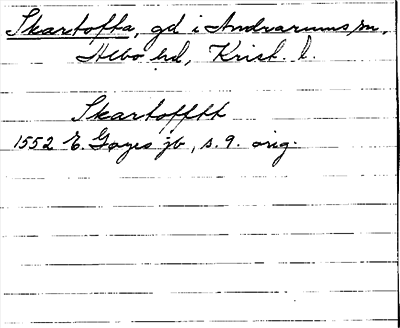 Skartofta, gd i Andrarums sn,
Albo hd, Krist. l.
Skartofftt
1552 E. Gøyes jb, s. 9. orig.